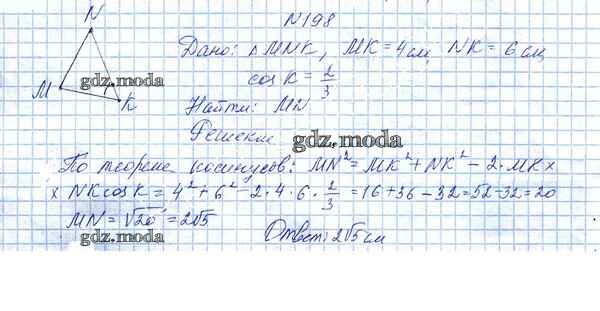 N198
N
Дано: △MNK, MK = 4см, NK = 6см,
gdz.moda
cos K = 2/3
M
K
Найти: MN.
Решение
gdz.moda
По теореме косинусов: MN² = MK² + NK² - 2·MK×
× NK cos K = 4² + 6² - 2·4·6·2/3 = 16 + 36 - 32 = 52 - 32 = 20
MN = √20 = 2√5
gdz.moda
Ответ: 2√5 см